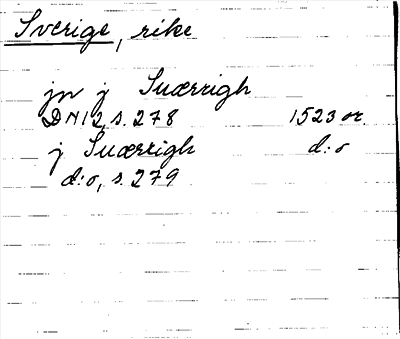 Sverige, rike
jn j Suærrigh
DN12, s. 278 1523 or.
j Suærrigh d:o
d:o, s. 279